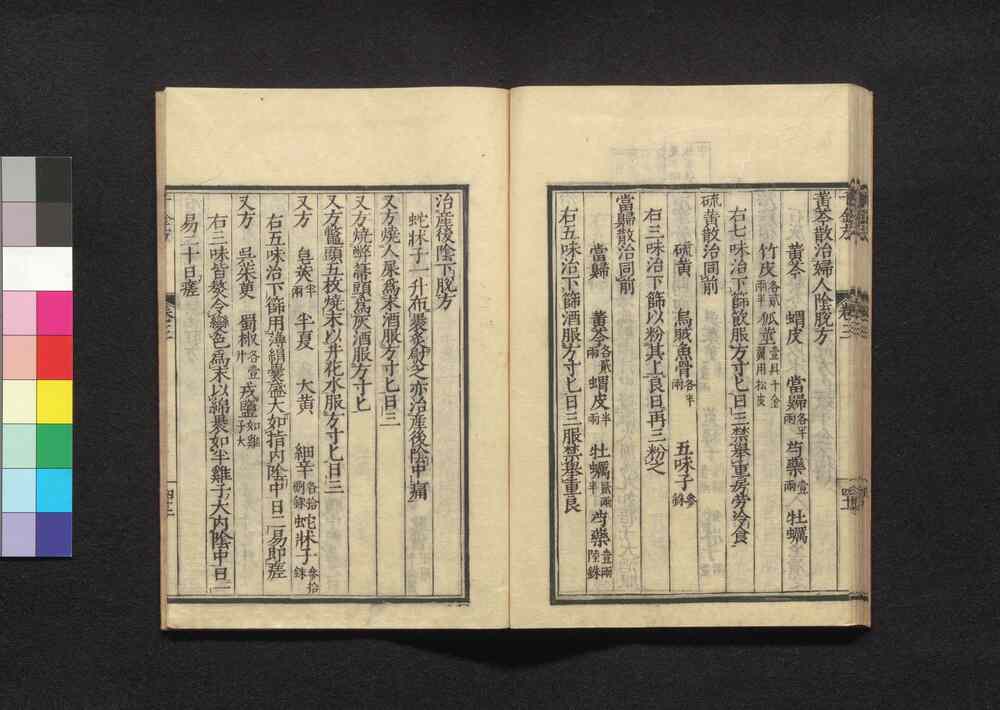 黃芩散治婦人陰脫方
黃芩 蝟皮 當歸各半兩 芍藥壹兩 牡蠣
竹皮各貳兩半 狐莖壹具千金翼用松皮
右七味治下篩飲服方寸匕日三禁舉重房勞冷食
硫黃散治同前
硫黃 烏賊魚骨各半兩 五味子參銖
右三味治下篩以粉其上良日再三粉之
當歸散治同前
當歸 黃芩各貳兩 蝟皮半兩 牡蠣貳兩半 芍藥壹兩陸銖
右五味治下篩酒服方寸匕日三服禁舉重良
治產後陰下脫方
蛇牀子一升布裹炙熨之亦治產後陰中痛
又方燒人屎爲末酒服方寸匕日三
又方燒弊帚頭爲灰酒服方寸匕
又方鼈頭五枚燒末以井花水服方寸匕日三
又方 皂莢半兩 半夏 大黃 細辛各拾捌銖 蛇牀子參拾銖
右五味治下篩用薄絹囊盛大如指內陰中日二易即瘥
又方 吳茱萸 蜀椒各壹升 戎鹽如雞子大
右三味皆熬令變色爲末以綿裹如半雞子大內陰中日一
易二十日瘥